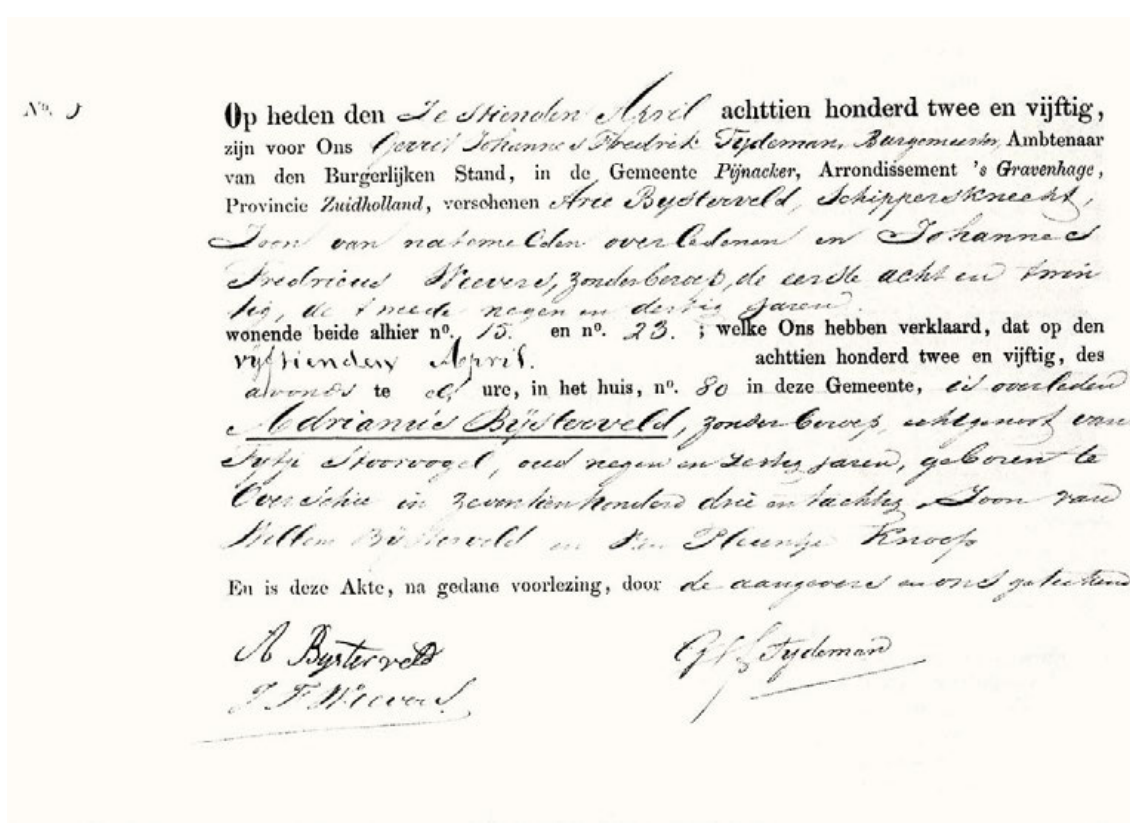 No.
Op heden den Zestienden April achttien honderd twee en vijftig,
zijn voor Ons Gerrit Johannes Fredrik Tydeman, Burgemeester, Ambtenaar
van den Burgerlijken Stand, in de Gemeente Pijnacker, Arrondissement 's Gravenhage,
Provincie Zuidholland, verschenen Arie Bysterveld, Schippersknecht,
Zoon van natemelden overledenen en Johannes
Fredricus Weevers, zonder beroep, de eerste acht en twin
tig, de tweede negen en dertig jaren
wonende beide alhier no. 15. en no. 23. ; welke Ons hebben verklaard, dat op den
vijftienden April. achttien honderd twee en vijftig, des
avonds te ure, in het huis, no. 80 in deze Gemeente, is overleden
Adrianus Bijsterveld, zonder beroep, echtgenoot van
Storvogel, oud negen en zestig jaren, geboren te
Overschie in zeventienhonderd drie en tachtig Zoon van
Willem Bijsterveld en Pleuntje Knoop
En is deze Akte, na gedane voorlezing, door de aangevers en ons geteekend
A Bysterveld
GJF Tydeman
J F Weevers.